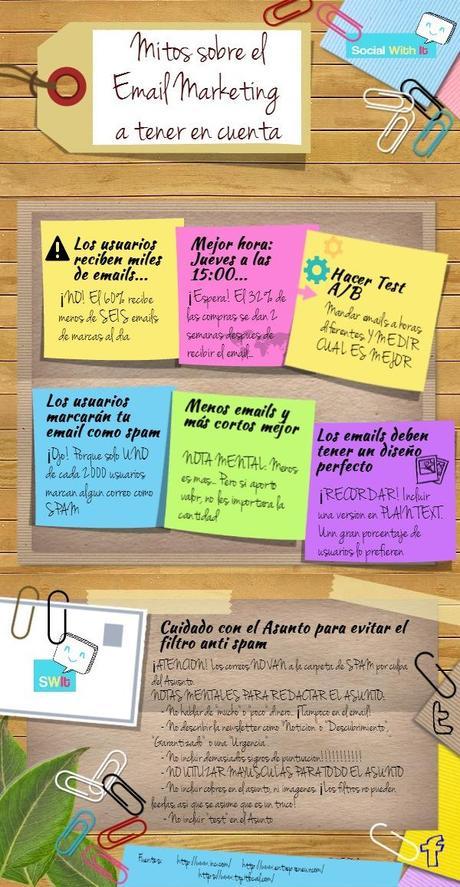 Mitos sobre el
Email Marketing
a tener en cuenta
Social With It
Los usuarios
reciben miles
de emails...
¡NO! El 60% recibe
menos de SEIS emails
de marcas al dia
Mejor hora:
Jueves a las
15:00...
¡Espera! El 32% de
las compras se dan 2
semanas despues de
recibir el email...
Hacer Test
A/B
Mandar emails a horas
diferentes. Y MEDIR
CUAL ES MEJOR
Los usuarios
marcarán tu
email como spam
¡Ojo! Porque solo UNO
de cada 2000 usuarios
marcan algun correo como
SPAM
Menos emails y
más cortos mejor
NOTA MENTAL: Menos
es mas... Pero si aporto
valor, no les importera la
cantidad
Los emails deben
tener un diseño
perfecto
¡RECORDAR! Incluir
una version en PLAIN TEXT.
Unn gran porcentaje de
usuarios lo prefieren
SWIt
Cuidado con el Asunto para evitar el
filtro anti spam
¡ATENCION! Los correos NO VAN a la carpeta de SPAM por culpa
del Asunto.
NOTAS MENTALES PARA REDACTAR EL ASUNTO:
- No hablar de "mucho" o "poco" dinero... ¡Tampoco en el email!
- No describir la newsletter como "Noticion" o "Descubrimiento",
"Garantizado" o una "Urgencia"...
- No incluir demasiados signos de puntuacion!!!!!!!!!!!!
- NO UTILIZAR MAYUSCULAS PARA TODO EL ASUNTO
- No incluir cobres en el asunto, ni imagenes. ¡Los filtros no pueden
leerlas, asi que se asume que es un truco!
- No incluir "test" en el Asunto
Fuentes: http://www.inc.com/ http://www.entrepreneur.com/